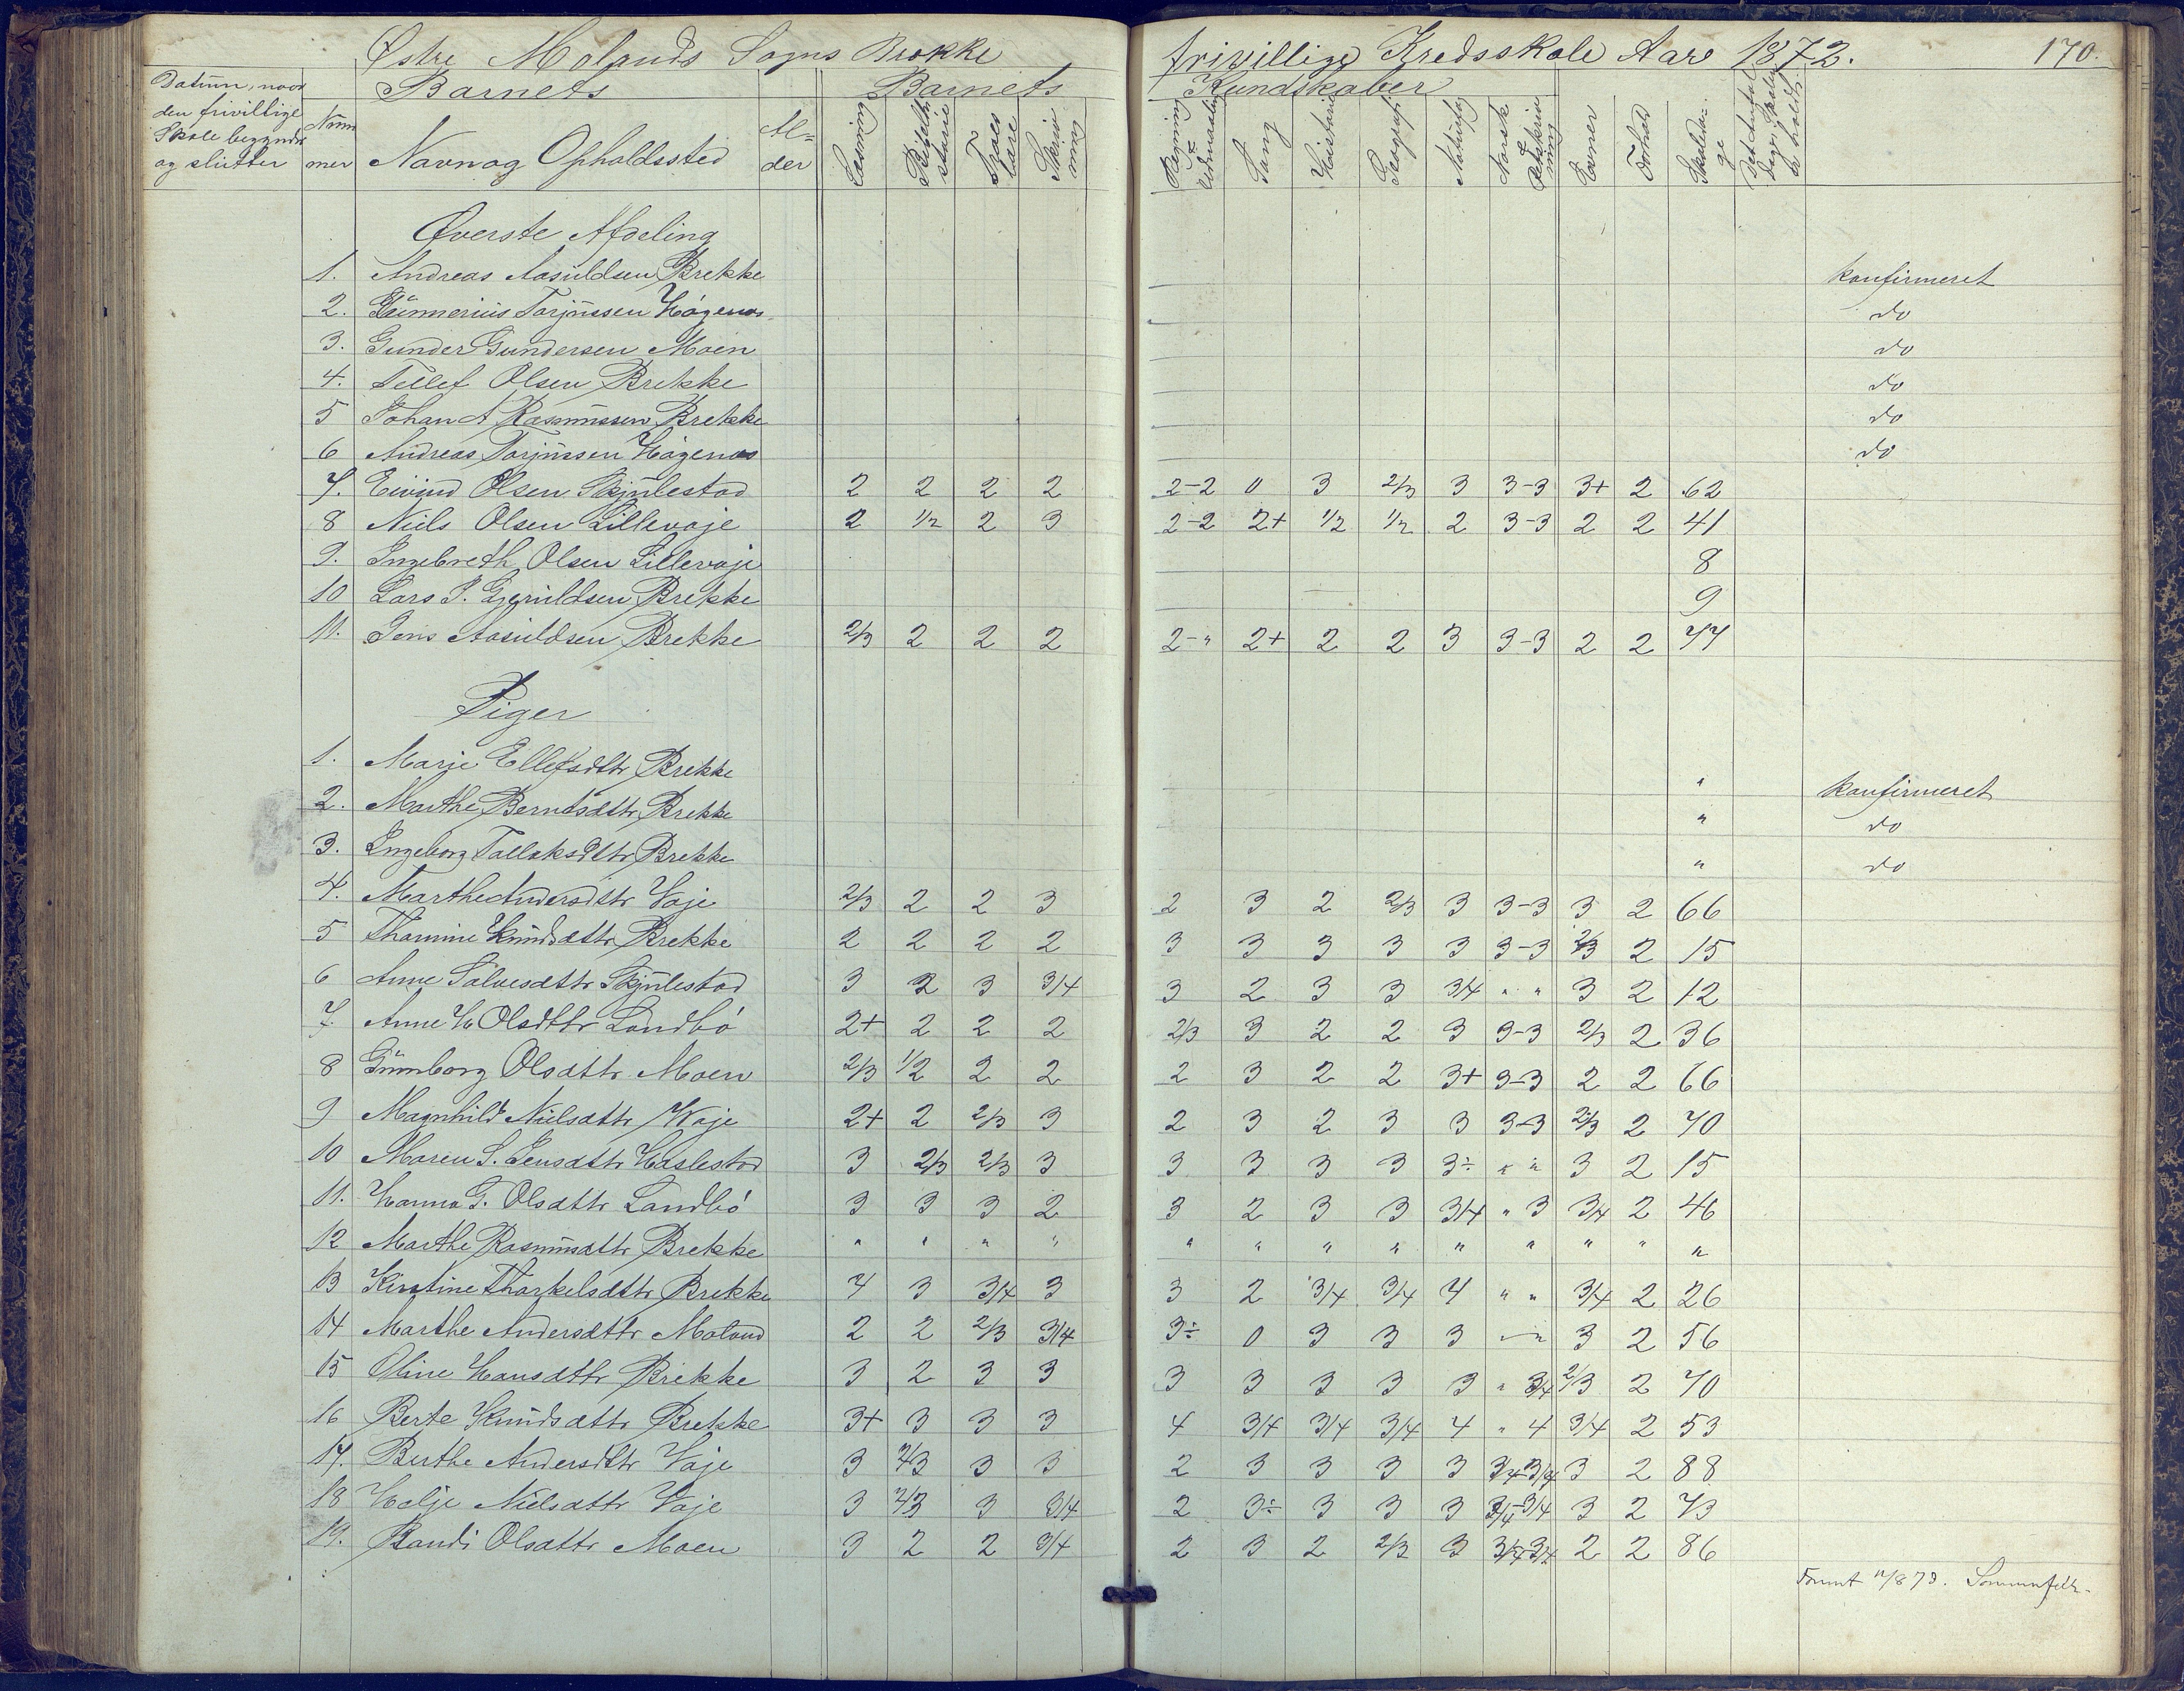 Østre Molands Sogns Brække frivillige Kredsskole Aar 1872. 170.
Datum, naar den frivillige Skole begynder og slutter
Barnets
Num mer Navn og Opholdssted Al= der
Barnets Kundskaber
Læsning Bibelhi storie Troes lære Skriv ning Regning Sang Historie Geografi Naturfag Norsk Retskriv ning Evner Forhold Skoleda ge
Øverste Afdeling
1. Andreas Aasuldsen Brekke konfirmeret
2. Gunnerius Torjussen Högenæs do
3. Gunder Gundersen Moen do
4. Tellef Olsen Brekke do
5 Johan A Rasmussen Brekke do
6 Andreas Torjussen Högenæs do
7. Eivind Olsen Skjulestad 2 2 2 2 2-2 0 3 2/3 3 3-3 3+ 2 62
8 Niels Olsen Lillevaje 2 1/2 2 3 2-2 2+ 1/2 1/2 2 3-3 2 2 41
9. Ingebreth Olsen Lillevaje 8
10 Lars J. Gjeruldsen Brekke 9
11. Jens Aasuldsen Brekke 2/3 2 2 2 2-" 2+ 2 2 3 3-3 2 2 77
Piger
1. Marje Ellefsdttr Brekke " konfirmeret
2. Marthe Berntsdttr Brekke " do
3. Ingeborg Tallaksdttr Brekke " do
4. Marthe Andersdttr Vaje 2/3 2 2 3 2 3 2 2/3 3 3-3 3 2 66
5 Thomine Knudsdttr Brekke 2 2 2 2 3 3 3 3 3 3-3 2/3 2 15
6 Anne Sølvesdttr Skjulestad 3 2 3 3/4 3 2 3 3 3/4 " " 3 2 12
7. Anne H Olsdttr Landbö 2+ 2 2 2 2/3 3 2 2 3 3-3 2/3 2 36
8 Gunborg Olsdttr Moen 2/3 1/2 2 2 2 3 2 2 3+ 3-3 2 2 66
9 Magnhild Nielsdttr Waje 2+ 2 2/3 3 2 3 2 3 3 3-3 2/3 2 70
10 Maren S. Jensdttr Haslestad 3 2/3 2/3 3 3 3 3 3 3÷ " " 3 2 15
11. Hanna G. Olsdttr Landbö 3 3 3 2 3 2 3 3 3/4 " 3 3/4 2 46
12 Marthe Rasmusdttr Brekke " " " " " " " " " " " " "
13 Kirstine Thorkelsdttr Brekke 4 3 3/4 3 3 2 3/4 3/4 4 " " 3/4 2 26
14 Marthe Andersdttr Moland 2 2 2/3 3/4 3÷ 0 3 3 3 "-" 3 2 56
15 Oline Hansdttr Brekke 3 2 3 3 3 3 3 3 3 " 3/4 2/3 2 70
16 Berte Knudsdttr Brekke 3+ 3 3 3 4 3/4 3/4 3/4 4 " 4 3/4 2 53
17. Berthe Andersdttr Vaje 3 2/3 3 3 2 3 3 3 3 3/4-3/4 3 2 88
18 Helje Nielsdttr Vaje 3 2/3 3 3/4 2 3÷ 3 3 3 3/4-3/4 3 2 73
19. Randi Olsdttr Moen 3 2 2 3/4 2 3 2 2/3 3 3/4-3/4 2 2 86